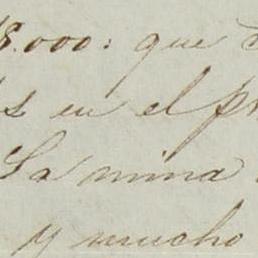 8.000: que
en el
La mina
y mucho